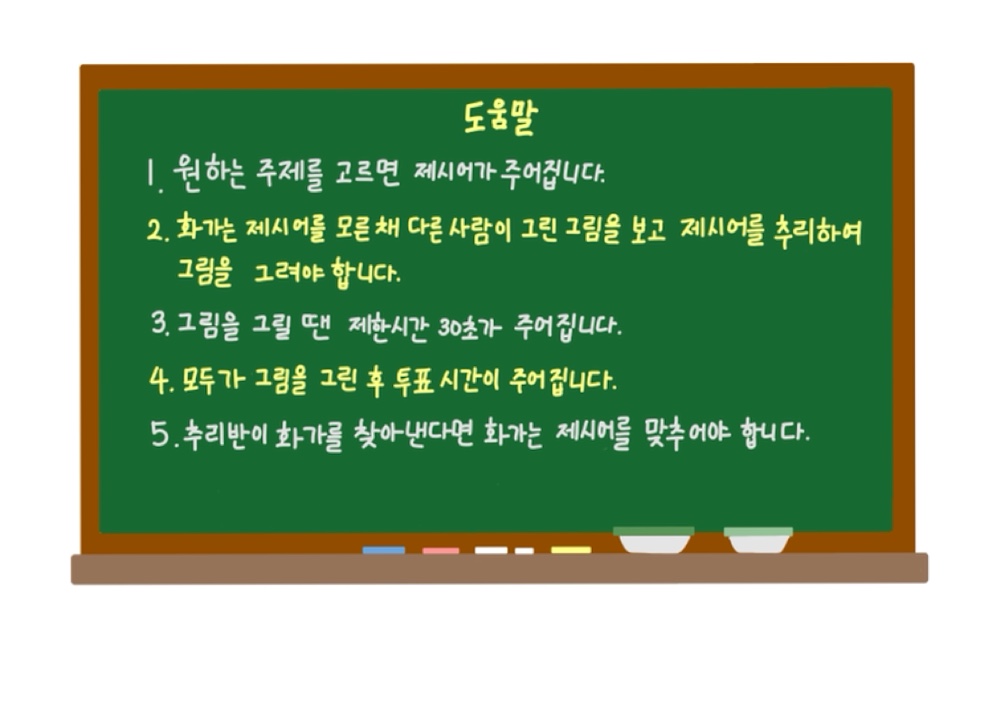 도움말
1. 원하는 주제를 고르면 제시어가 주어집니다.
2. 화가는 제시어를 모른채 다른 사람이 그린 그림을 보고 제시어를 추리하여
그림을 그려야 합니다.
3. 그림을 그릴 땐 제한시간 30초가 주어집니다.
4. 모두가 그림을 그린 후 투표 시간이 주어집니다.
5. 추리반이 화가를 찾아낸다면 화가는 제시어를 맞추어야 합니다.